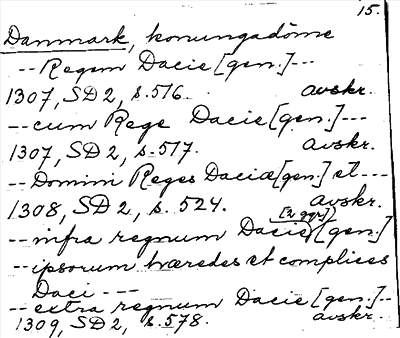 15.
Danmark, konungadöme
-- Regem Dacie [gen.] ---
1307, SD 2, s. 516. avskr.
-- cum Rege Dacie [gen.] ---
1307, SD 2, s. 517. avskr.
-- Domini Reges Daciæ [gen.] et ---
1308, SD 2, s. 524. avskr.
[2 ggr]
-- infra regnum Dacie [gen.]
-- ipsorum hæredes et complices
Daci ---
-- extra regnum Dacie [gen.] --
1309, SD 2, s. 578. avskr.